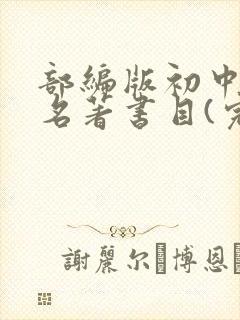 部编版初中
名著书目(完
謝麗尔 博恩